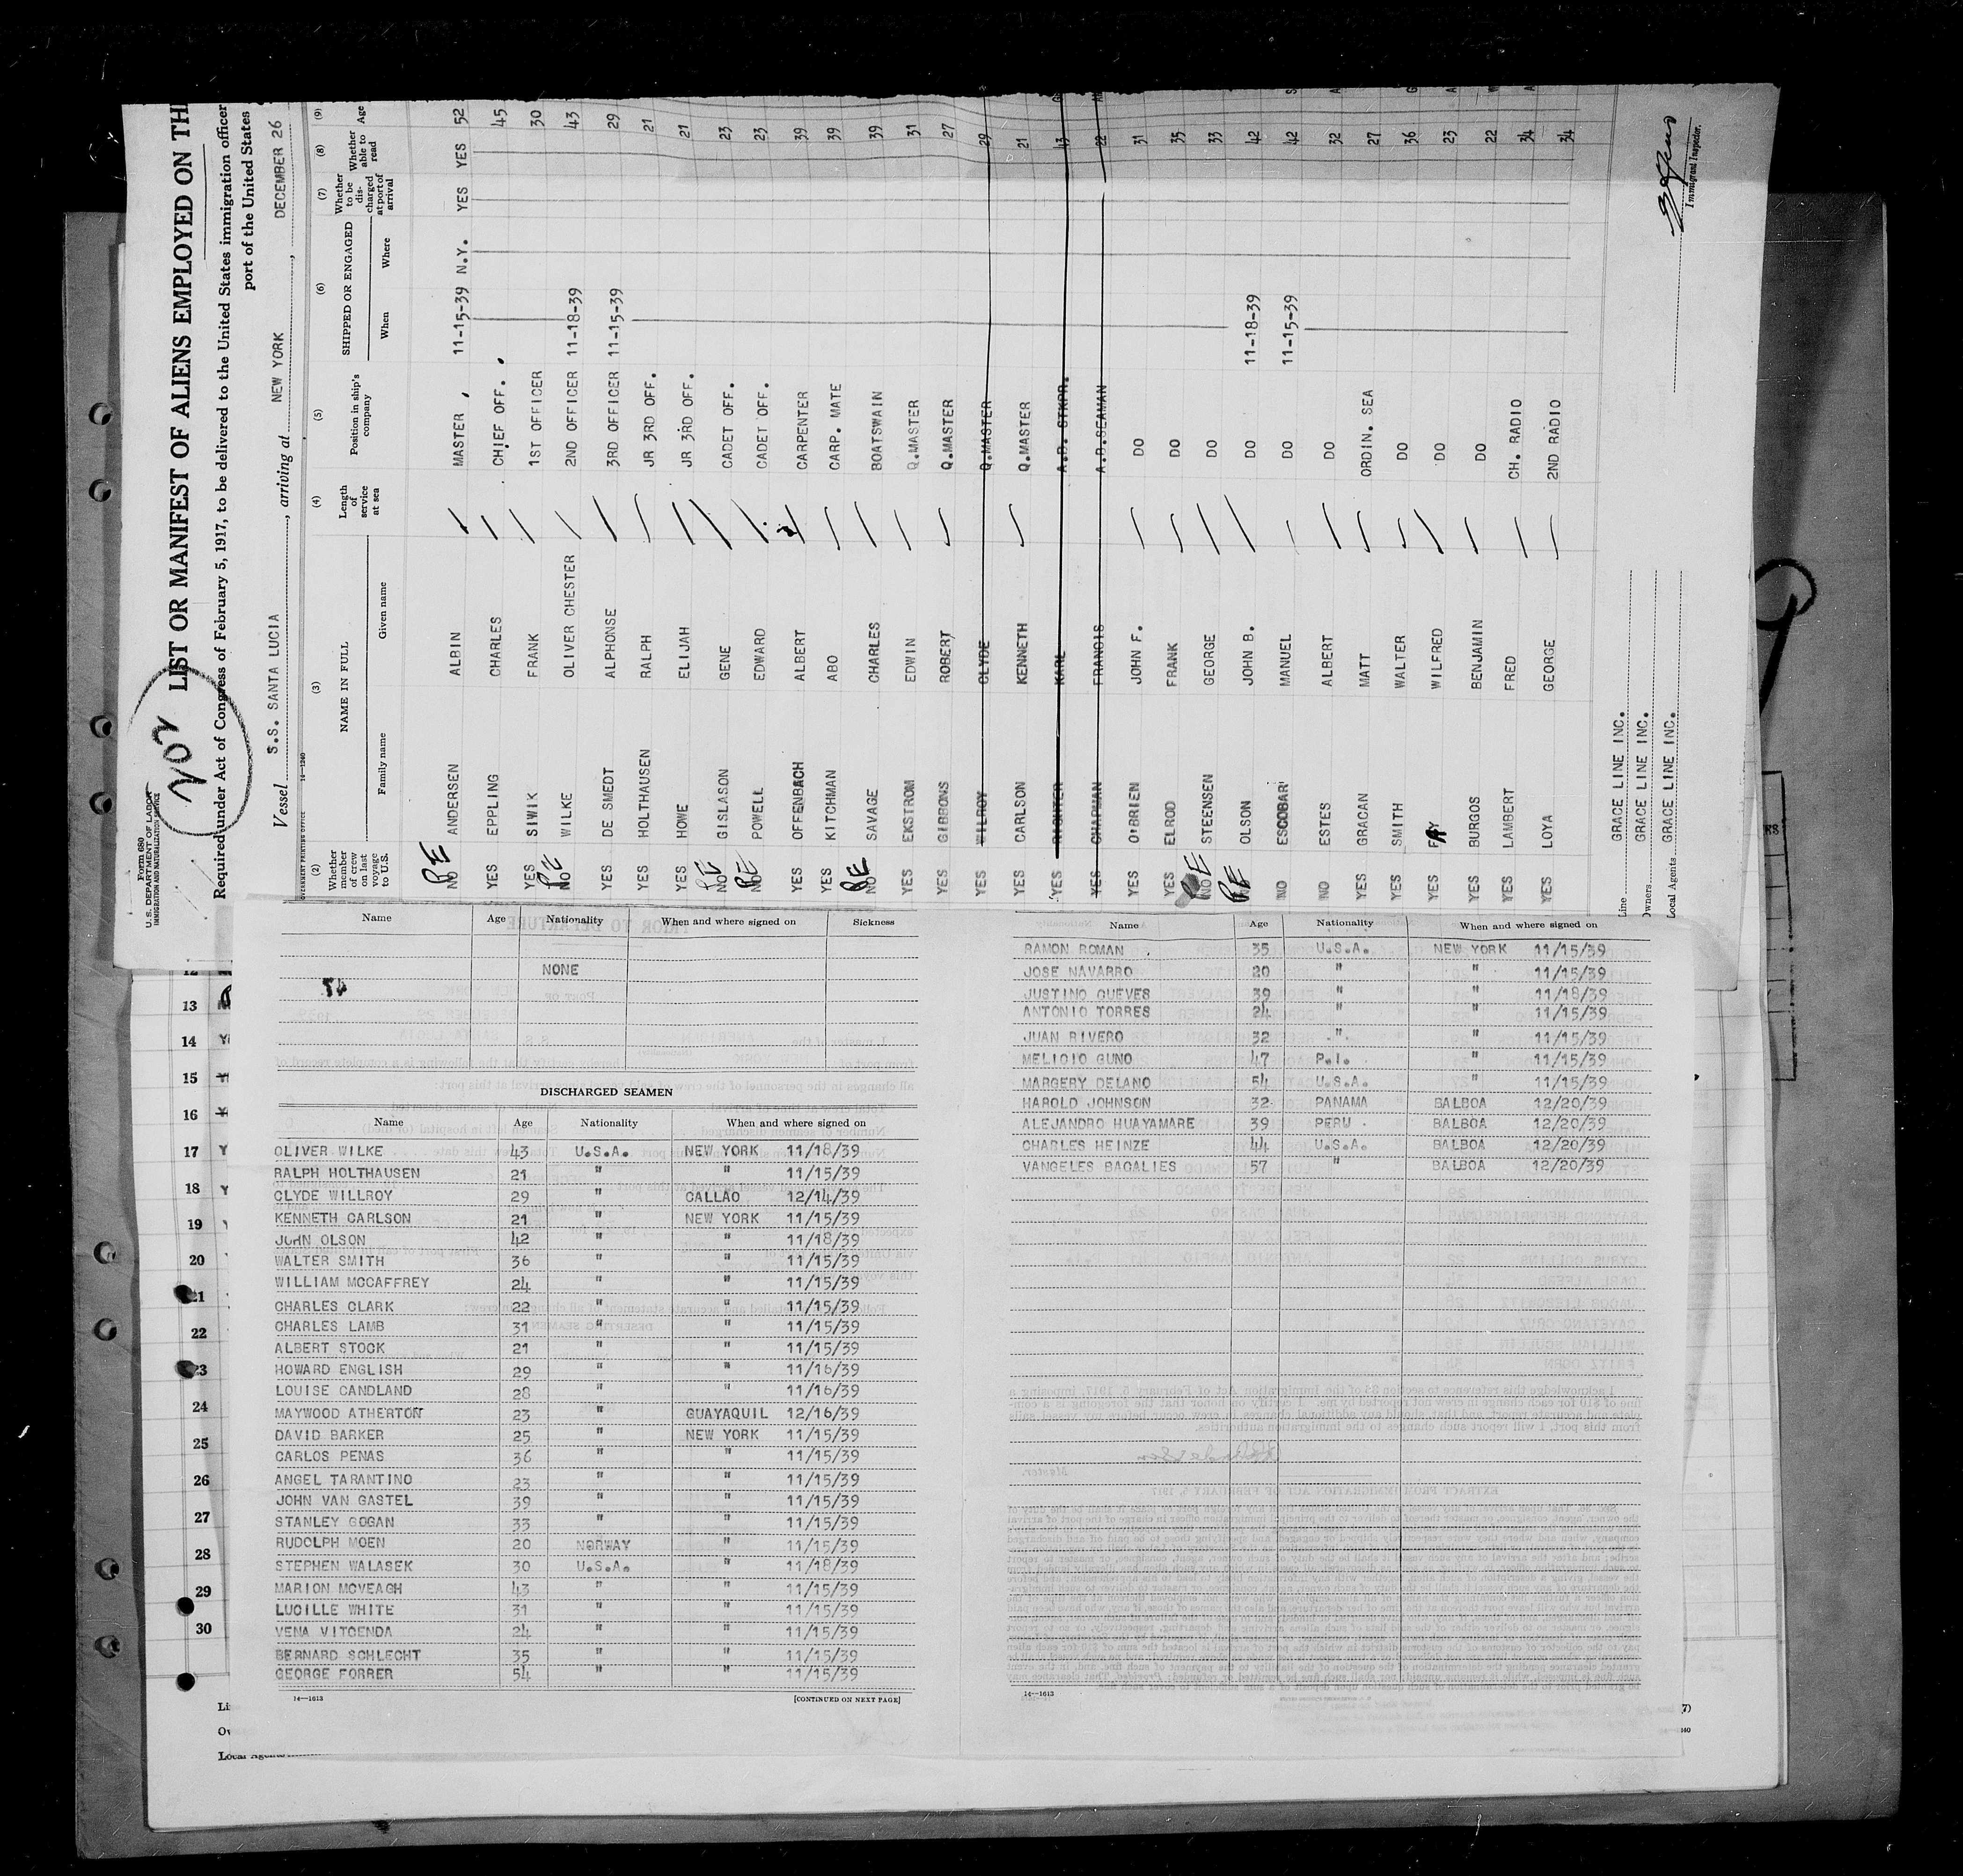 Form 680
U. S. DEPARTMENT OF LABOR
IMMIGRATION AND NATURALIZATION SERVICE
202
LIST OR MANIFEST OF ALIENS EMPLOYED ON TH
Required under Act of Congress of February 5, 1917, to be delivered to the United States immigration officer
port of the United States
Vessel S.S. SANTA LUCIA, arriving at NEW YORK, DECEMBER 26
GOVERNMENT PRINTING OFFICE 14—1240
(2) (3) (4) (5) (6) (7) (8) (9)
Whether member of crew on last voyage to U.S. NAME IN FULL Length of service at sea Position in ship's company SHIPPED OR ENGAGED Whether to be discharged at port of arrival Whether able to read Age
Family name Given name When Where
NO ANDERSEN ALBIN MASTER 11-15-39 N.Y. YES YES 52
YES EPPLING CHARLES CHIEF OFF. 45
YES SIWIK FRANK 1ST OFFICER 30
NO WILKE OLIVER CHESTER 2ND OFFICER 11-18-39 43
YES DE SMEDT ALPHONSE 3RD OFFICER 11-15-39 29
YES HOLTHAUSEN RALPH JR 3RD OFF. 21
YES HOWE ELIJAH JR 3RD OFF. 21
NO GISLASON GENE CADET OFF. 23
NO POWELL EDWARD CADET OFF. 23
YES OFFENBACH ALBERT CARPENTER 39
YES KITCHMAN ABO CARP. MATE 39
NO SAVAGE CHARLES BOATSWAIN 39
YES EKSTROM EDWIN Q.MASTER 31
YES GIBBONS ROBERT Q.MASTER 27
YES WILROY CLYDE Q.MASTER 29
YES CARLSON KENNETH Q.MASTER 21
YES KARL A.B. STKPR. 43
YES CHAPMAN FRANCIS A.B.SEAMAN 22
YES O'BRIEN JOHN F. DO 31
YES ELROD FRANK DO 35
NO STEENSEN GEORGE DO 33
NO OLSON JOHN B. DO 11-18-39 42
NO ESCOBAR MANUEL DO 11-15-39 42
NO ESTES ALBERT DO 32
YES GRACAN MATT ORDIN. SEA 27
YES SMITH WALTER DO 36
YES FAY WILFRED DO 23
YES BURGOS BENJAMIN DO 22
YES LAMBERT FRED CH. RADIO 34
YES LOYA GEORGE 2ND RADIO 34
Line GRACE LINE INC.
Owners GRACE LINE INC.
Local Agents GRACE LINE INC.
Immigrant Inspector.
12
13
14
15
16
17
18
19
20
21
22
23
24
25
26
27
28
29
30
Name Age Nationality When and where signed on Sickness
NONE
DISCHARGED SEAMEN
Name Age Nationality When and where signed on
OLIVER WILKE 43 U.S.A. NEW YORK 11/18/39
RALPH HOLTHAUSEN 21 " " 11/15/39
CLYDE WILLROY 29 " CALLAO 12/14/39
KENNETH CARLSON 21 " NEW YORK 11/15/39
JOHN OLSON 42 " " 11/18/39
WALTER SMITH 36 " " 11/15/39
WILLIAM MCCAFFREY 24 " " 11/15/39
CHARLES CLARK 22 " " 11/15/39
CHARLES LAMB 31 " " 11/15/39
ALBERT STOCK 21 " " 11/15/39
HOWARD ENGLISH 29 " " 11/16/39
LOUISE CANDLAND 28 " " 11/16/39
MAYWOOD ATHERTON 23 " GUAYAQUIL 12/16/39
DAVID BARKER 25 " NEW YORK 11/15/39
CARLOS PENAS 36 " " 11/15/39
ANGEL TARANTINO 23 " " 11/15/39
JOHN VAN GASTEL 39 " " 11/15/39
STANLEY GOGAN 33 " " 11/15/39
RUDOLPH MOEN 20 NORWAY " 11/15/39
STEPHEN WALASEK 30 U.S.A. " 11/18/39
MARION MCVEAGH 43 " " 11/15/39
LUCILLE WHITE 31 " " 11/15/39
VENA VITCENDA 24 " " 11/15/39
BERNARD SCHLECHT 35 " " 11/15/39
GEORGE FORRER 54 " " 11/15/39
14—1613 [CONTINUED ON NEXT PAGE]
Name Age Nationality When and where signed on
RAMON ROMAN 35 U.S.A. NEW YORK 11/15/39
JOSE NAVARRO 20 " " 11/15/39
JUSTINO CUEVES 39 " " 11/18/39
ANTONIO TORRES 24 " " 11/15/39
JUAN RIVERO 32 " " 11/15/39
MELICIO GUNO 47 P.I. " 11/15/39
MARGERY DELANO 54 U.S.A. " 11/15/39
HAROLD JOHNSON 32 PANAMA BALBOA 12/20/39
ALEJANDRO HUAYAMARE 39 PERU BALBOA 12/20/39
CHARLES HEINZE 44 U.S.A. BALBOA 12/20/39
VANGELES BAGALIES 57 " BALBOA 12/20/39
14—1613
Local Agents